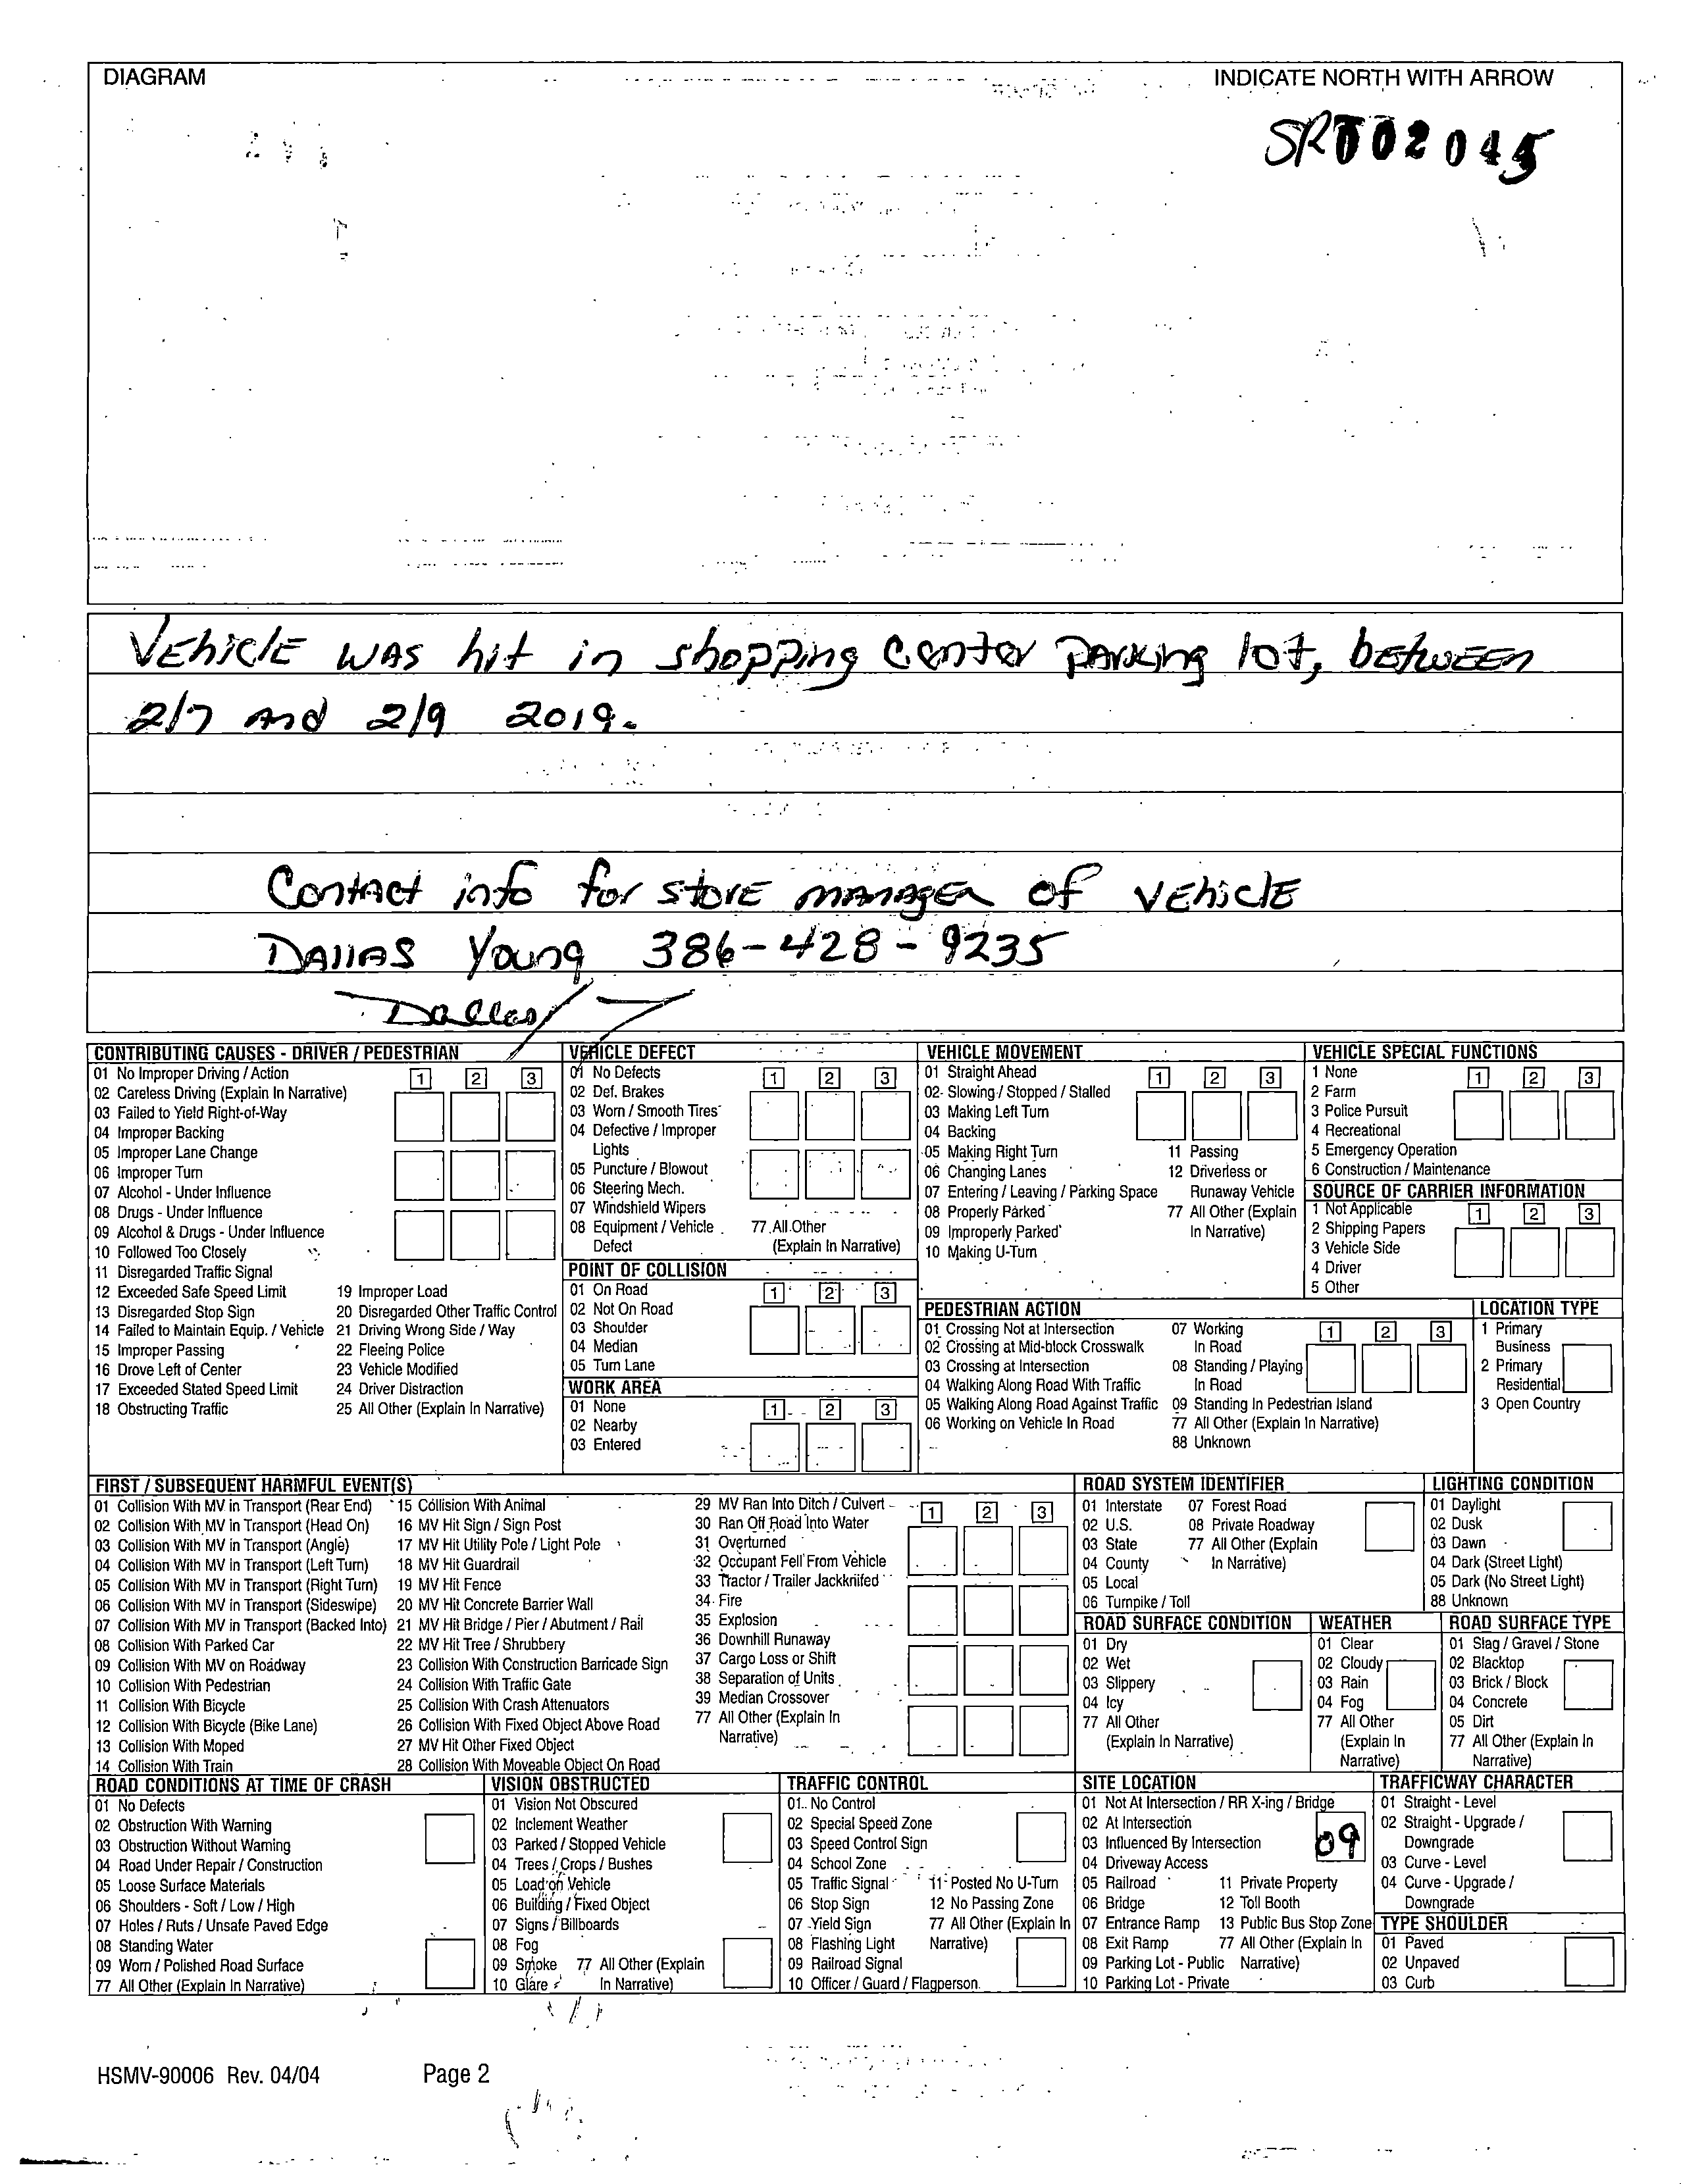 DIAGRAM
INDICATE NORTH WITH ARROW
VEhiclE WAS hit in shopping Center PARKing lot, bEtwEEn
2/7 And 2/9 2019.
ContAct info for storE mAnAgEr of VEhiclE
DAllAS Young 386-428-9235
Dallas
CONTRIBUTING CAUSES - DRIVER / PEDESTRIAN
01 No Improper Driving / Action
1 2 3
02 Careless Driving (Explain In Narrative)
03 Failed to Yield Right-of-Way
04 Improper Backing
05 Improper Lane Change
06 Improper Turn
07 Alcohol - Under Influence
08 Drugs - Under Influence
09 Alcohol & Drugs - Under Influence
10 Followed Too Closely
11 Disregarded Traffic Signal
12 Exceeded Safe Speed Limit
13 Disregarded Stop Sign
14 Failed to Maintain Equip. / Vehicle
15 Improper Passing
16 Drove Left of Center
17 Exceeded Stated Speed Limit
18 Obstructing Traffic
19 Improper Load
20 Disregarded Other Traffic Control
21 Driving Wrong Side / Way
22 Fleeing Police
23 Vehicle Modified
24 Driver Distraction
25 All Other (Explain In Narrative)
VEHICLE DEFECT
01 No Defects
1 2 3
02 Def. Brakes
03 Worn / Smooth Tires
04 Defective / Improper
Lights
05 Puncture / Blowout
06 Steering Mech.
07 Windshield Wipers
08 Equipment / Vehicle
Defect
77 All Other
(Explain In Narrative)
POINT OF COLLISION
01 On Road
1 2 3
02 Not On Road
03 Shoulder
04 Median
05 Turn Lane
WORK AREA
01 None
1 2 3
02 Nearby
03 Entered
VEHICLE MOVEMENT
01 Straight Ahead
1 2 3
02 Slowing / Stopped / Stalled
03 Making Left Turn
04 Backing
05 Making Right Turn
06 Changing Lanes
07 Entering / Leaving / Parking Space
08 Properly Parked
09 Improperly Parked
10 Making U-Turn
11 Passing
12 Driverless or
Runaway Vehicle
77 All Other (Explain
In Narrative)
VEHICLE SPECIAL FUNCTIONS
1 None
1 2 3
2 Farm
3 Police Pursuit
4 Recreational
5 Emergency Operation
6 Construction / Maintenance
SOURCE OF CARRIER INFORMATION
1 Not Applicable
1 2 3
2 Shipping Papers
3 Vehicle Side
4 Driver
5 Other
PEDESTRIAN ACTION
01 Crossing Not at Intersection
02 Crossing at Mid-block Crosswalk
03 Crossing at Intersection
04 Walking Along Road With Traffic
05 Walking Along Road Against Traffic
06 Working on Vehicle In Road
07 Working
In Road
1 2 3
08 Standing / Playing
In Road
09 Standing In Pedestrian Island
77 All Other (Explain In Narrative)
88 Unknown
LOCATION TYPE
1 Primary
Business
2 Primary
Residential
3 Open Country
FIRST / SUBSEQUENT HARMFUL EVENT(S)
01 Collision With MV in Transport (Rear End)
02 Collision With MV in Transport (Head On)
03 Collision With MV in Transport (Angle)
04 Collision With MV in Transport (Left Turn)
05 Collision With MV in Transport (Right Turn)
06 Collision With MV in Transport (Sideswipe)
07 Collision With MV in Transport (Backed Into)
08 Collision With Parked Car
09 Collision With MV on Roadway
10 Collision With Pedestrian
11 Collision With Bicycle
12 Collision With Bicycle (Bike Lane)
13 Collision With Moped
14 Collision With Train
15 Collision With Animal
16 MV Hit Sign / Sign Post
17 MV Hit Utility Pole / Light Pole
18 MV Hit Guardrail
19 MV Hit Fence
20 MV Hit Concrete Barrier Wall
21 MV Hit Bridge / Pier / Abutment / Rail
22 MV Hit Tree / Shrubbery
23 Collision With Construction Barricade Sign
24 Collision With Traffic Gate
25 Collision With Crash Attenuators
26 Collision With Fixed Object Above Road
27 MV Hit Other Fixed Object
28 Collision With Moveable Object On Road
29 MV Ran Into Ditch / Culvert
1 2 3
30 Ran Off Road Into Water
31 Overturned
32 Occupant Fell From Vehicle
33 Tractor / Trailer Jackknifed
34 Fire
35 Explosion
36 Downhill Runaway
37 Cargo Loss or Shift
38 Separation of Units
39 Median Crossover
77 All Other (Explain In
Narrative)
ROAD SYSTEM IDENTIFIER
01 Interstate
02 U.S.
03 State
04 County
05 Local
06 Turnpike / Toll
07 Forest Road
08 Private Roadway
77 All Other (Explain
In Narrative)
LIGHTING CONDITION
01 Daylight
02 Dusk
03 Dawn
04 Dark (Street Light)
05 Dark (No Street Light)
88 Unknown
ROAD SURFACE CONDITION
01 Dry
02 Wet
03 Slippery
04 Icy
77 All Other
(Explain In Narrative)
WEATHER
01 Clear
02 Cloudy
03 Rain
04 Fog
77 All Other
(Explain In
Narrative)
ROAD SURFACE TYPE
01 Slag / Gravel / Stone
02 Blacktop
03 Brick / Block
04 Concrete
05 Dirt
77 All Other (Explain In
Narrative)
ROAD CONDITIONS AT TIME OF CRASH
01 No Defects
02 Obstruction With Warning
03 Obstruction Without Warning
04 Road Under Repair / Construction
05 Loose Surface Materials
06 Shoulders - Soft / Low / High
07 Holes / Ruts / Unsafe Paved Edge
08 Standing Water
09 Worn / Polished Road Surface
77 All Other (Explain In Narrative)
VISION OBSTRUCTED
01 Vision Not Obscured
02 Inclement Weather
03 Parked / Stopped Vehicle
04 Trees / Crops / Bushes
05 Load on Vehicle
06 Building / Fixed Object
07 Signs / Billboards
08 Fog
09 Smoke
10 Glare
77 All Other (Explain
In Narrative)
TRAFFIC CONTROL
01 No Control
02 Special Speed Zone
03 Speed Control Sign
04 School Zone
05 Traffic Signal
06 Stop Sign
07 Yield Sign
08 Flashing Light
09 Railroad Signal
10 Officer / Guard / Flagperson
11 Posted No U-Turn
12 No Passing Zone
77 All Other (Explain In
Narrative)
SITE LOCATION
01 Not At Intersection / RR X-ing / Bridge
02 At Intersection
03 Influenced By Intersection
09
04 Driveway Access
05 Railroad
06 Bridge
07 Entrance Ramp
08 Exit Ramp
09 Parking Lot - Public
10 Parking Lot - Private
11 Private Property
12 Toll Booth
13 Public Bus Stop Zone
77 All Other (Explain In
Narrative)
TRAFFICWAY CHARACTER
01 Straight - Level
02 Straight - Upgrade /
Downgrade
03 Curve - Level
04 Curve - Upgrade /
Downgrade
TYPE SHOULDER
01 Paved
02 Unpaved
03 Curb
HSMV-90006 Rev. 04/04
Page 2